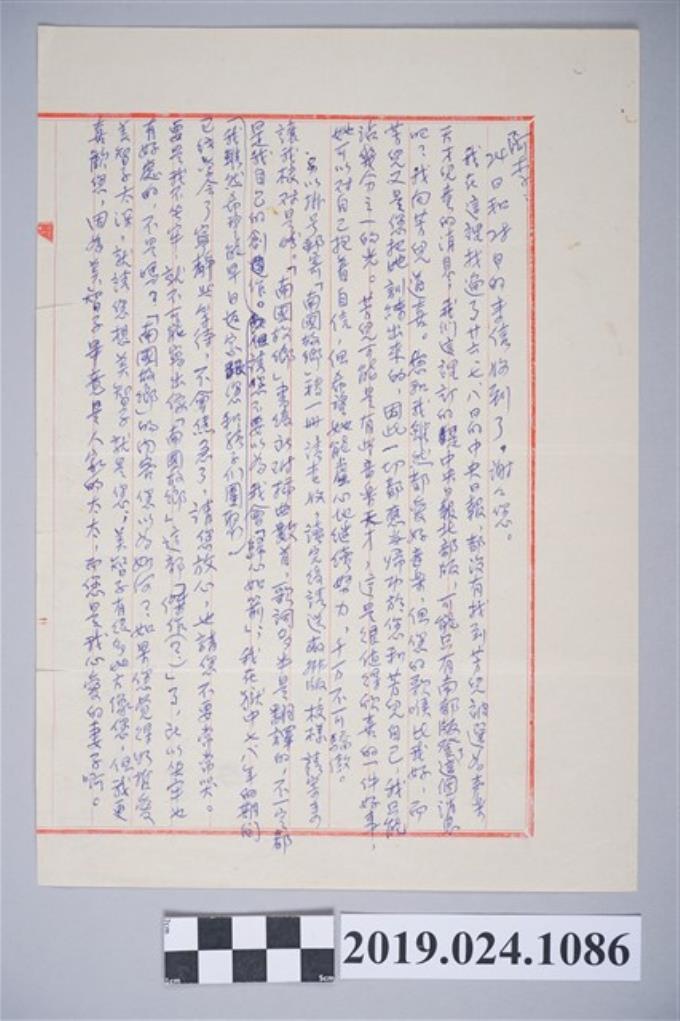 阿李：
24日和28日的來信收到了。謝謝您。
我在這裡找遍了廿六、七、八日的中央日報，都沒有找到芳兒被選為未來
天才兒童的消息，我們這裡訂的是中央日報北部版，可能只有南部版登這個消息
吧？我向芳兒道喜。您和我雖然都愛好音樂，但您的歌喉比我好，而
芳兒又是您把她訓練出來的，因此一切都應當歸功於您和芳兒自己，我只能
沾幾分之一的光。芳兒可能是有些音樂天才，這是很值得欣喜的一件好事，
她可以對自己抱着自信，但希望她能虛心地繼續努力，千萬不可驕傲。
另以掛號郵寄「南國故鄉」稿一冊請查收，讀完後請送去排版，校樣請寄來
讓我校對是盼。「南國故鄉」書後面附插曲數首，歌詞多半是翻譯的，不一定都
是我自己的創作。但請您不要以為我會「歸心如箭」，我在獄中七八年的期間
（我雖然希望能早日返家跟您和孩子們團聚）
已經學會了寧靜與等待，不會傷急了，請您放心，也請您不要常常哭。
要是我不坐牢，就不可能寫出像「南國故鄉」這部「傑作（？）」了，所以坐牢也
有好處的，不是嗎？「南國故鄉」的內容您以為如何？如果您覺得哲愛
美智子太深，就請您想美智子就是您，美智子有很多地方像您，但我更
喜歡您，因為美智子畢竟是人家的太太，而您是我心愛的妻子啊。
2019.024.1086